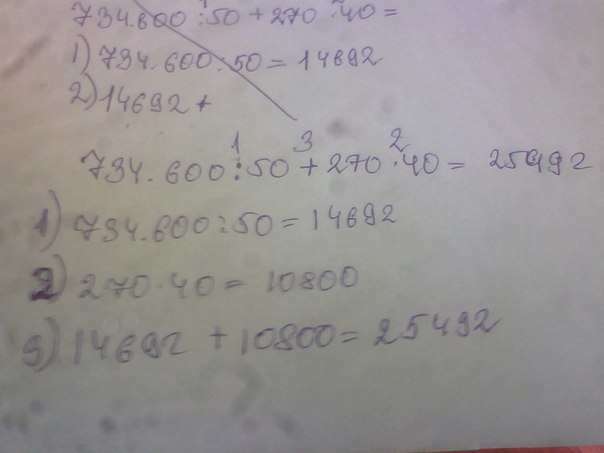 734.600:50+270·40=
1) 734.600:50=14692
2) 14692+
1 3 2
734.600:50+270·40= 25492
1) 734.600:50=14692
2) 270·40=10800
3) 14692+10800=25492